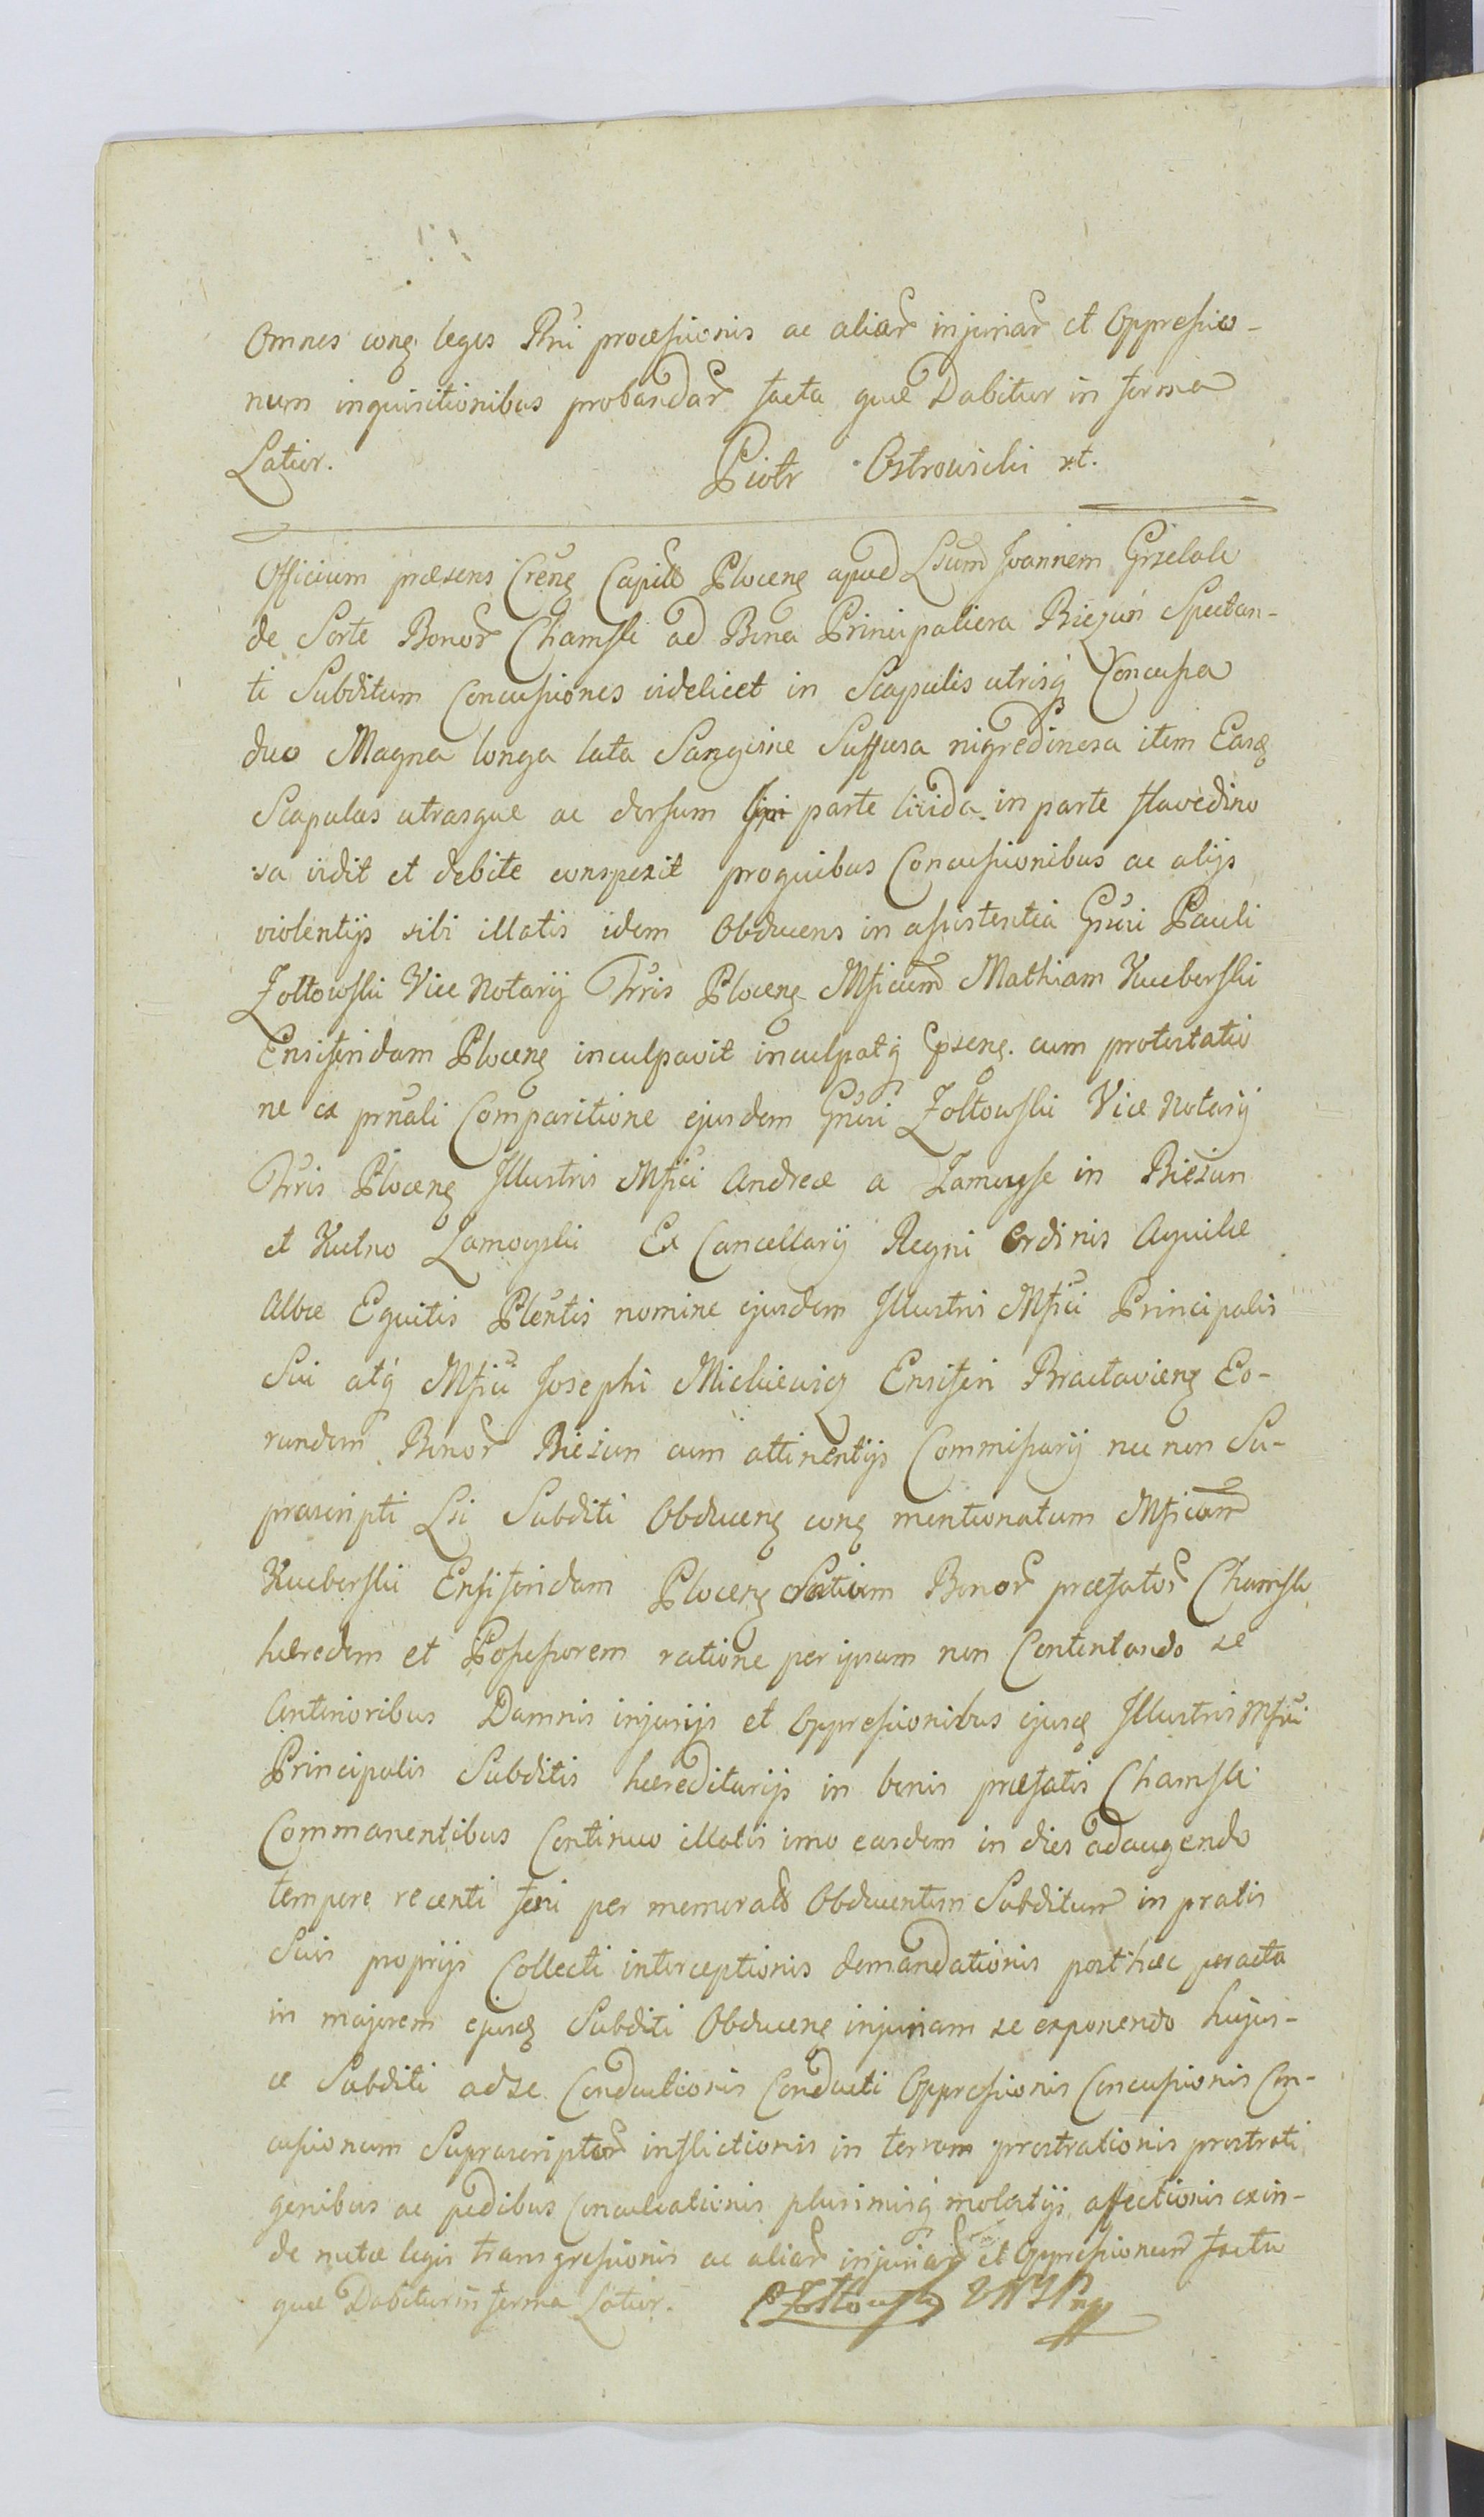 Omnes conę leges Rni processionis ac aliar̃ injuriar̃ et Oppressio-
num inquisitionibus probandar̃ facta quæ Dabitur in forma
Latior.
Piotr Ostrowski
Officium præsens Crẽnę Capitt̃ Plocenę apud Lsum Joannem Grzelak
de Sorte Bonor̃ Chamsk ad Bona Principaliora Biezuń Spectan-
ti Subditum Concussiones videlicet in Scapulis utrisq́ Concussa
duo Magna longa lata Sangvine Suffusa nigredinosa item Easdę
Scapulas utrasque ac dorsum parte livida in parte flavedino
sa vidit et debite conspexit proquibus Concussionibus ac alijs
violentijs sibi illatis idem Obducens in assistentia Gnri Pauli
Zołtowski Vice Notarij Trris Plocenę Mficum Mathiam Kucborski
Ensiferidam Plocenę inculpavit inculpatq́ cum protestatio
ne ex prnali Comparitione ejusdem Gnri Zołtowski Vice Notarij
Trris Plocenę Illustris Mfici Andreæ a Zamoysc in Biezun
et Kutno Zamoyski Ex Cancellarij Regni Ordinis Aquilæ
Albæ Equitis Plentis nomine ejusdem Illustris Mfici Principalis
Sui atq́ Mfici Josephi Mickiewicz Ensiferi Bractavienę Eo-
rundem Bonor̃ Biezun cum attinentijs Commissarij nec non Su-
prascripti Lsi Subditi Obducenę conę mentionatum Mficum
Kucborski Ensiferidam Plocenę Bonor̃ præfator̃ Chamsk
hæredem et Possessorem ratione per ipsum non Contentando se
Anterioribus Damnis injurijs et Oppressionibus ejusdę Illustris Mfici
Principalis Subditis hæreditarijs in bonis præfatis Chamsk
Commanentibus Continuo illatis imo easdem in dies adaugendo
tempore recenti feni per memorat̃ Obducentem Subditum in pratis
Suis proprijs Collecti interceptionis demandationis post hæc peracta
in majorem ejusdę Subditi Obducenę injuriam se exponendo hujus-
ce Subditi ad se Conductionis Conducti Oppressionis Concussionis Con-
cussionum Suprascriptar̃ inflictionis in terram prostrationis prostrati
genibus ac pedibus Conculcationis plurimisq́ molestijs affectionis exin-
de metæ legis transgressionis ac aliar̃ injuriar̃ et Oppressionum facta
quæ Dabitur in forma Latior. P Zołtowski